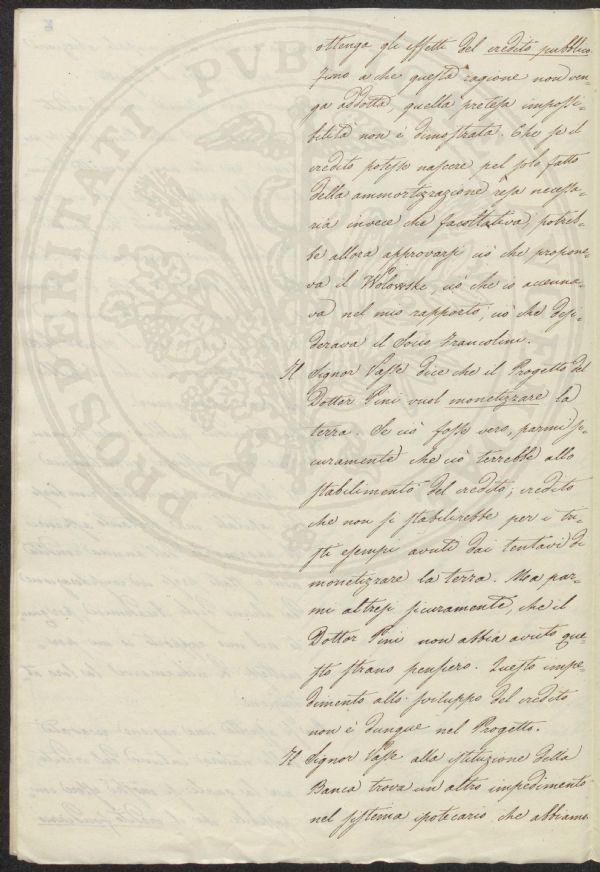 ottenga gli effetti del credito pubblico
fino a che questa ragione non ven-
ga addotta, quella pretesa impossi-
bilità non è dimostrata. Che se il
credito potesse nascere pel solo fatto
della ammortizzazione resa necessa-
ria invece che facoltativa, potreb-
be allora approvarsi ciò che propone-
va il Wolowski, ciò che io accenna-
va nel mio rapporto, ciò che desi-
derava il Socio Francolini.
Il Signor Passe dice che il Progetto del
Dottor Pini vuol monetizzare la
terra. Se ciò fosse vero, parmi si-
curamente che ciò terrebbe allo
stabilimento del credito; credito
che non si stabilirebbe per i tri-
sti esempi avuti dai tentavi di
monetizzare la terra. Ma par-
mi altresì sicuramente, che il
Dottor Pini non abbia avuto que-
sto strano pensiero. Questo impe-
dimento allo sviluppo del credito
non è dunque nel Progetto.
Il Signor Passe alla istituzione della
Banca trova un altro impedimento
nel sistema ipotecario che abbiamo
PROSPERITATI PUBLICAE